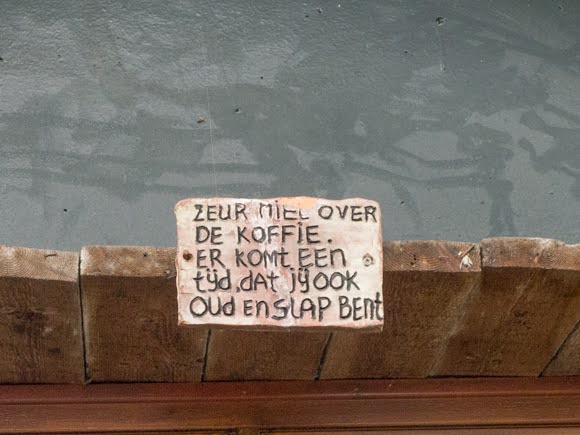 ZEUR NIET OVER
DE KOFFIE.
ER KOMT EEN
tÿd, dAt JÿOOK
OUd EN SLAP BENt